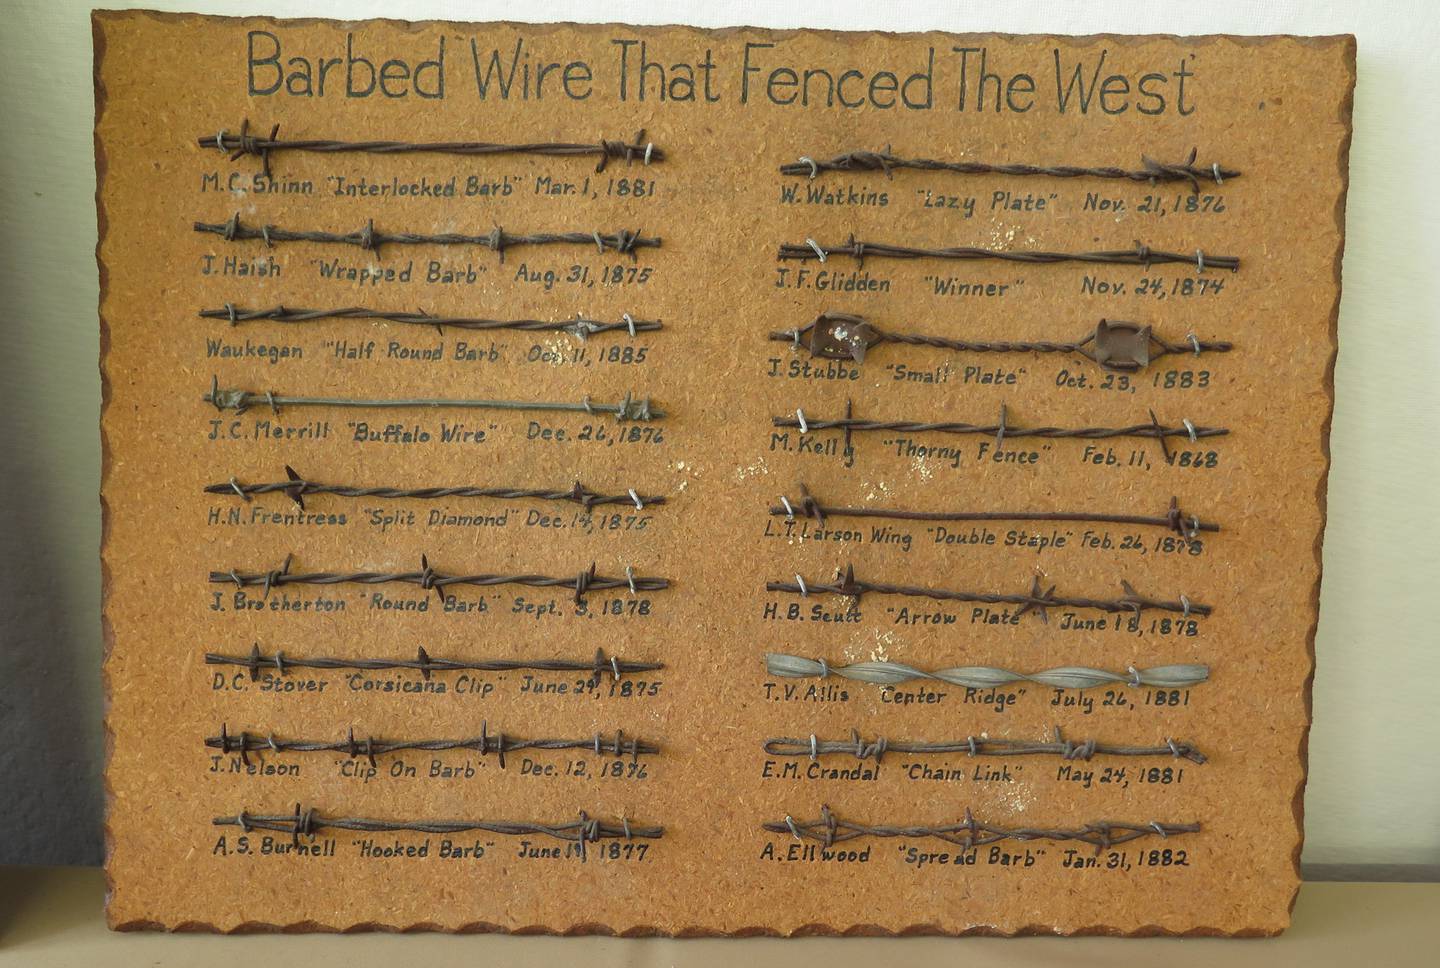 Barbed Wire That Fenced The West
M.C. Shinn "Interlocked Barb" Mar. 1, 1881
J. Haish "Wrapped Barb" Aug. 31, 1875
Waukegan "Half Round Barb" Oct. 11, 1885
J.C. Merrill "Buffalo Wire" Dec. 26, 1876
H.N. Frentress "Split Diamond" Dec. 14, 1875
J. Brotherton "Round Barb" Sept. 3, 1878
D.C. Stover "Corsicana Clip" June 29, 1875
J. Nelson "Clip On Barb" Dec. 12, 1876
A.S. Burnell "Hooked Barb" June 19, 1877
W. Watkins "Lazy Plate" Nov. 21, 1876
J.F. Glidden "Winner" Nov. 24, 1874
J. Stubbe "Small Plate" Oct. 23, 1883
M. Kelly "Thorny Fence" Feb. 11, 1868
L.T. Larson Wing "Double Staple" Feb. 26, 1878
H.B. Scutt "Arrow Plate" June 18, 1878
T.V. Allis "Center Ridge" July 26, 1881
E.M. Crandal "Chain Link" May 24, 1881
A. Ellwood "Spread Barb" Jan. 31, 1882